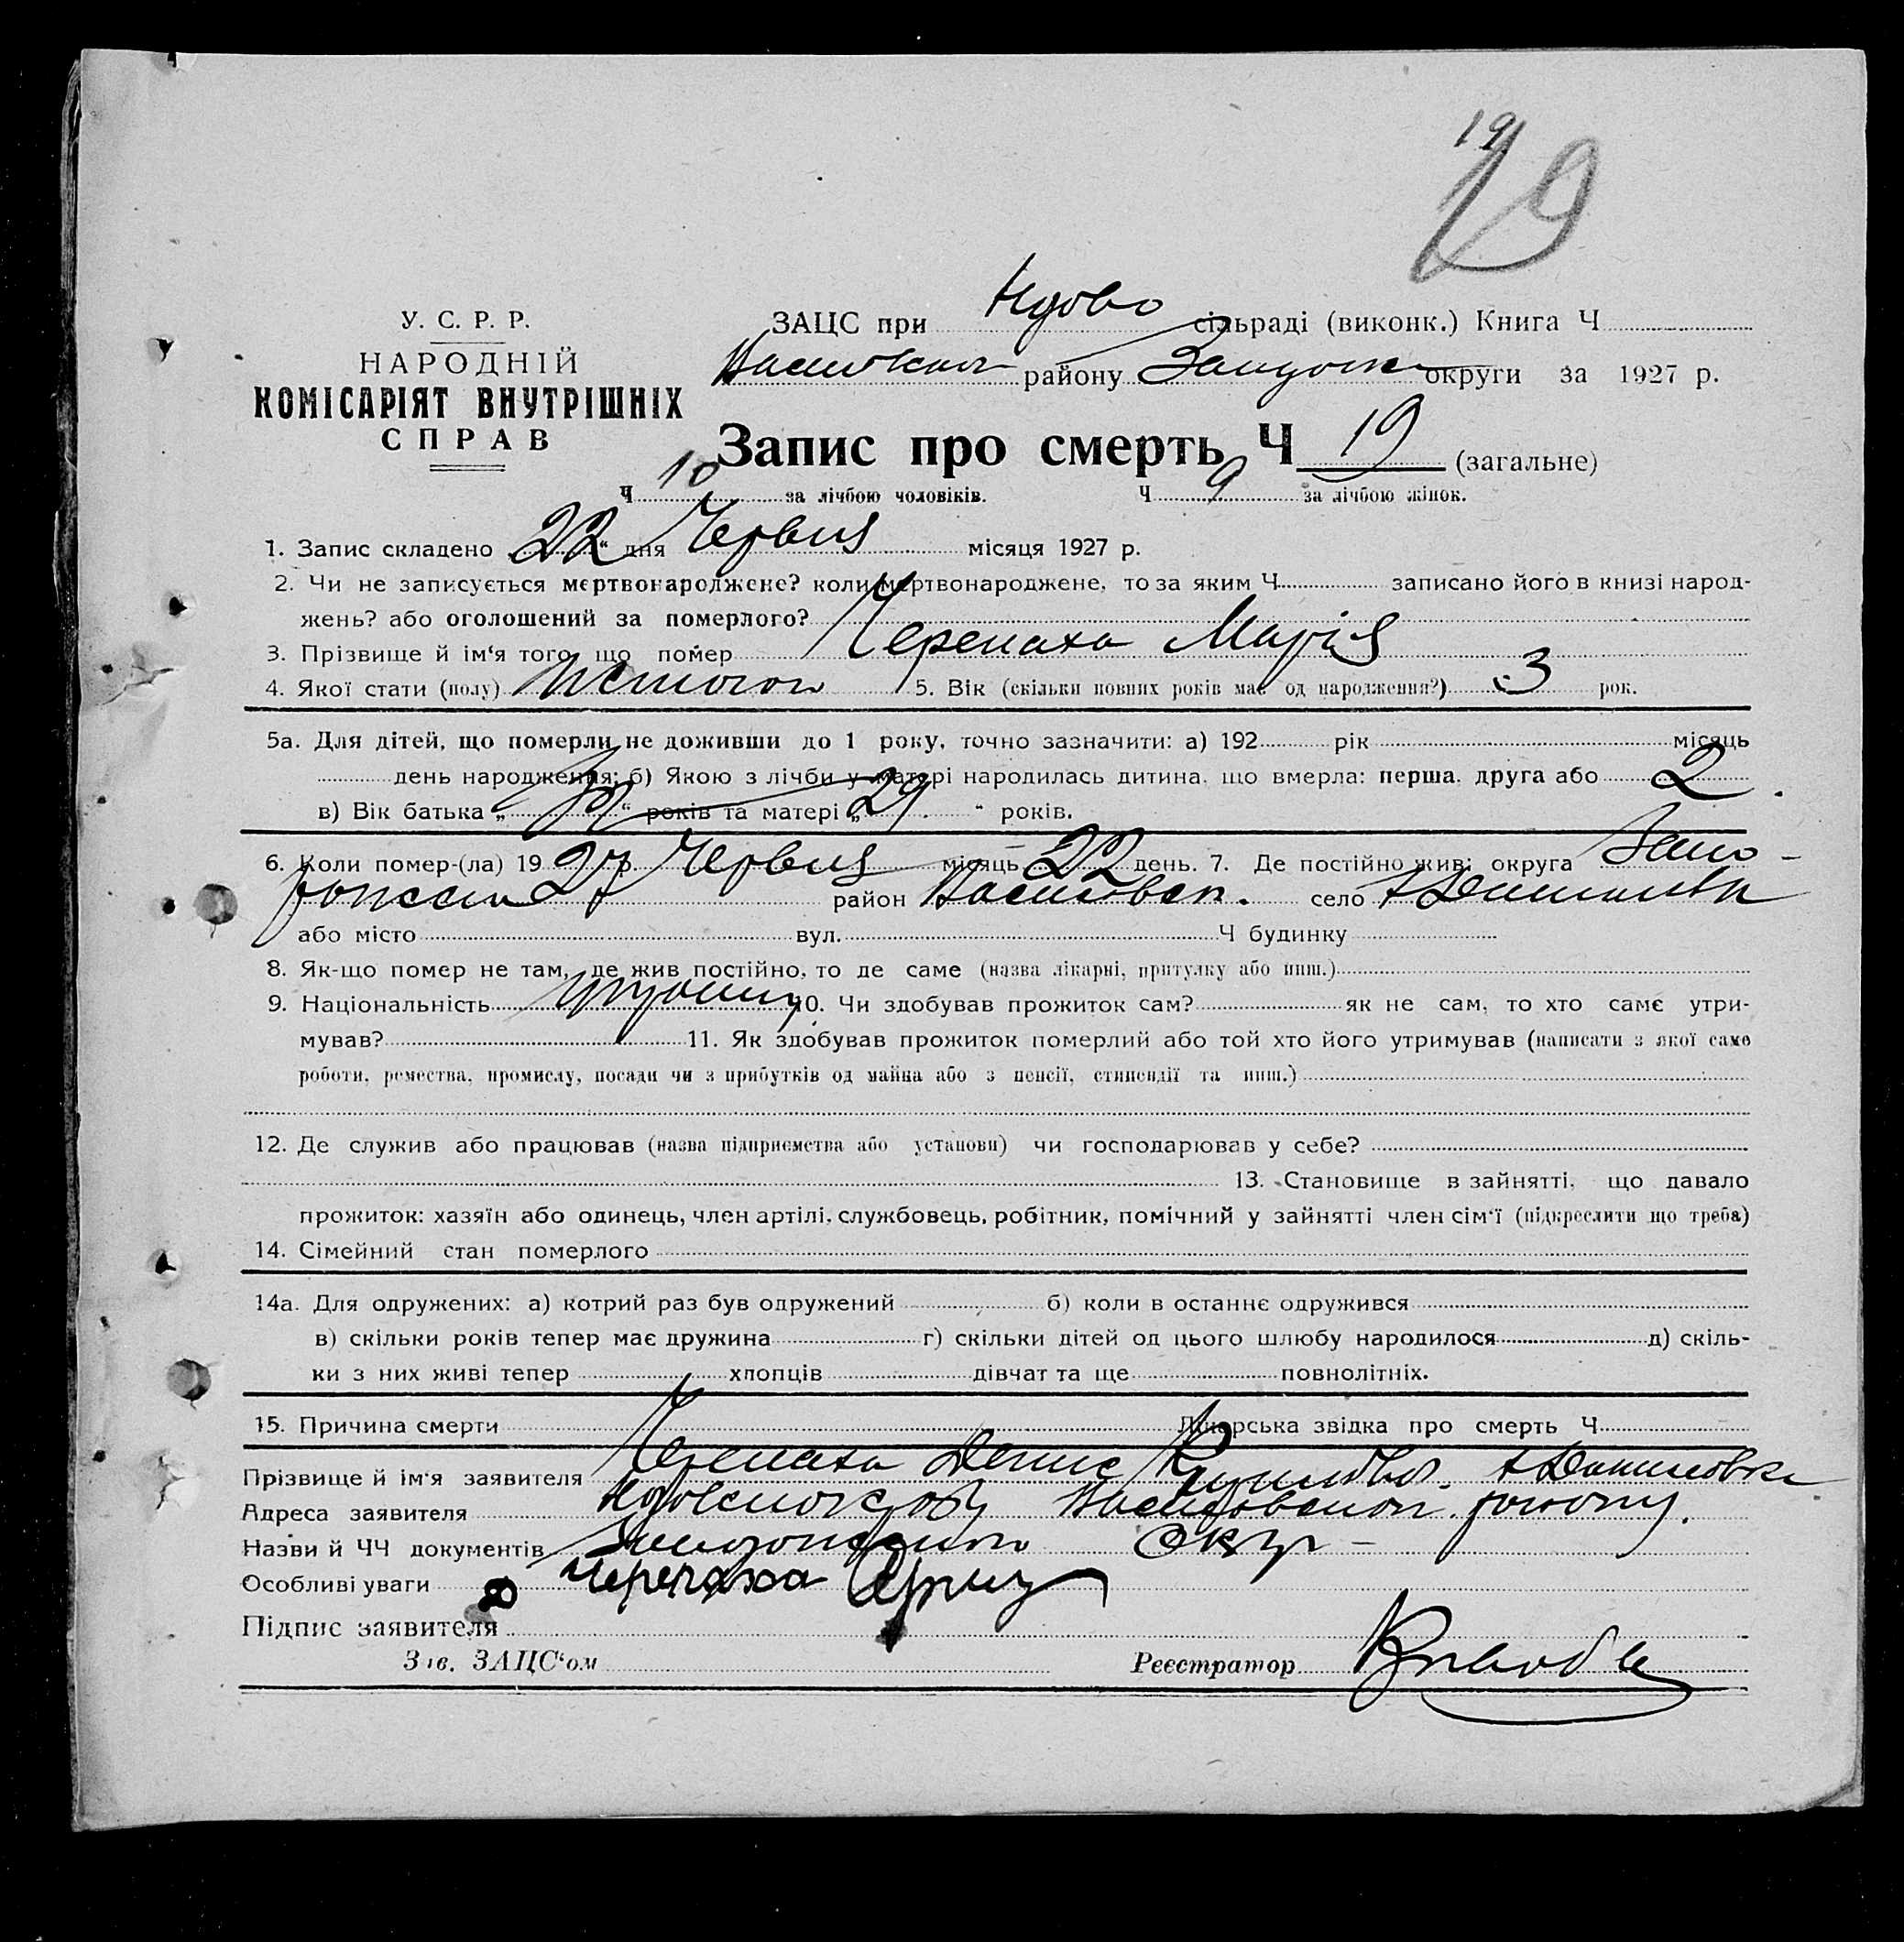 19
19
У. С. Р. Р.
НАРОДНІЙ
КОМІСАРІЯТ ВНУТРІШНІХ
СПРАВ
ЗАЦС при сільраді (виконк.) Книга Ч
району округи за 1927 р.
Запис про смерть Ч 19 (загальне)
Ч 10 за лічбою чоловіків. Ч 9 за лічбою жінок.
1. Запис складено 22 " дня Червня місяця 1927 р.
2. Чи не записується мертвонароджене? коли мертвонароджене, то за яким Ч записано його в книзі народ-
жень? або оголошений за померлого?
3. Прізвище й ім'я того, що помер Черепаха Марія
4. Якої стати (полу) 5. Вік (скільки повних років має од народження?) 3 рок.
5а. Для дітей, що померли не доживши до 1 року, точно зазначити: а) 192 рік місяць
день народження; б) Якою з лічби у матері народилась дитина, що вмерла: перша, друга або 2.
в) Вік батька „ " років та матері „ 29 " років.
6. Коли помер-(ла) 1927 р. Червня місяць 22 день. 7. Де постійно жив: округа Запо-
район село
або місто вул. Ч будинку
8. Як-що помер не там, де жив постійно, то де саме (назва лікарні, притулку або инш.)
9. Національність 10. Чи здобував прожиток сам? як не сам, то хто саме утри-
мував? 11. Як здобував прожиток померлий або той хто його утримував (написати з якої саме
роботи, ремества, промислу, посади чи з прибутків од майна або з пенсії, стипендії та инш.)
12. Де служив або працював (назва підприємства або установи) чи господарював у себе?
13. Становище в зайнятті, що давало
прожиток: хазяїн або одинець, член артілі, службовець, робітник, помічний у зайнятті член сім'ї (підкреслити що треба)
14. Сімейний стан померлого
14а. Для одружених: а) котрий раз був одружений б) коли в останнє одружився
в) скільки років тепер має дружина г) скільки дітей од цього шлюбу народилося д) скіль-
ки з них живі тепер хлопців дівчат та ще повнолітніх.
15. Причина смерти Лікарська звідка про смерть Ч
Прізвище й ім'я заявителя Черепаха Денис
Адреса заявителя
Назви й ЧЧ документів Окр
Особливі уваги Черепаха
Підпис заявителя
Зав. ЗАЦС'ом Реєстратор